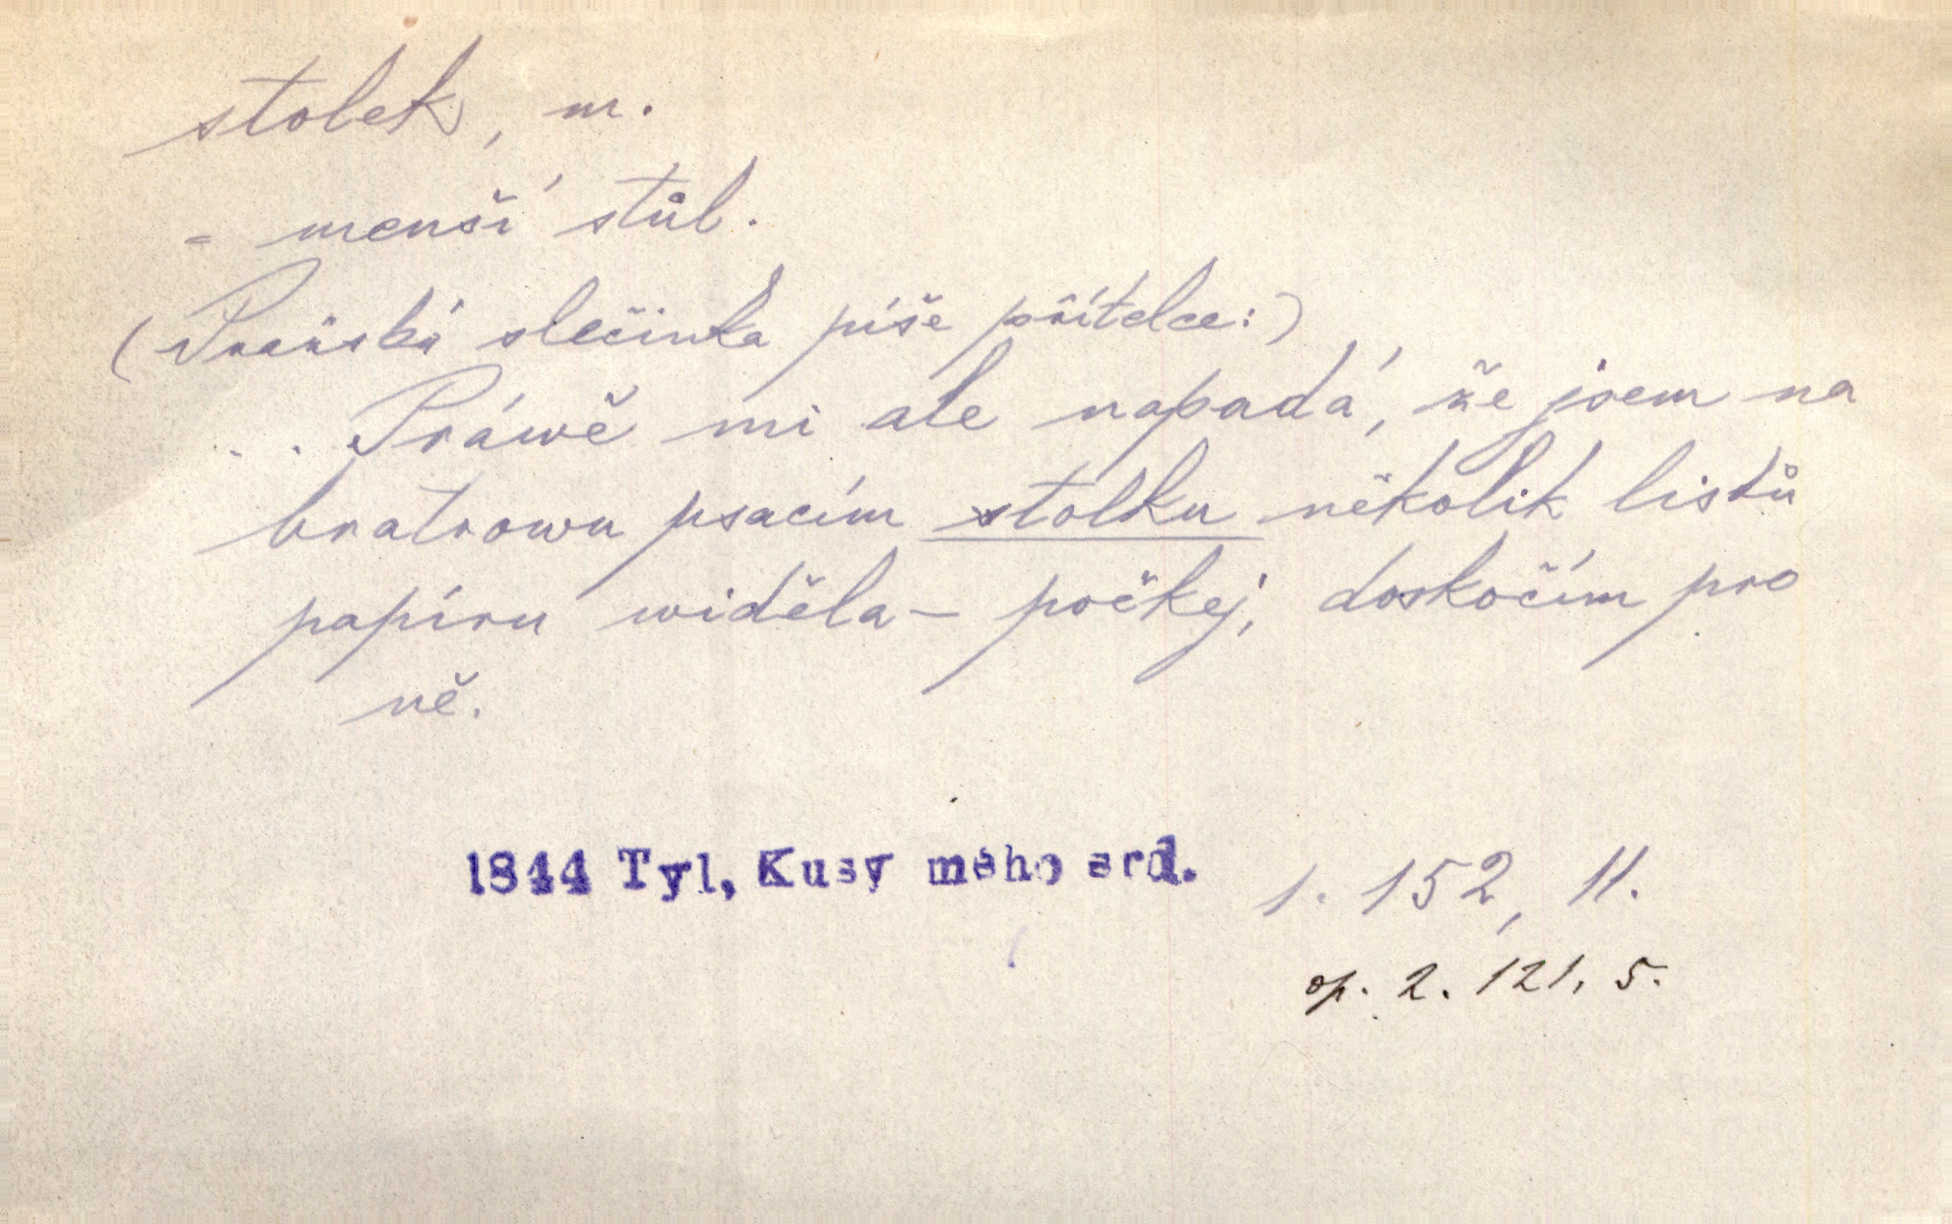 stolek, m.
= menší stůl.
(Pražská slečinka píše přítelce:)
.. Práwě mi ale napadá, že jsem na
bratrowu psacím stolku několik listů
papíru widěla – počkej, doskočím pro
ně.
1844 Tyl, Kusy mého srd. 1. 152, 11.
op. 2. 121, 5.